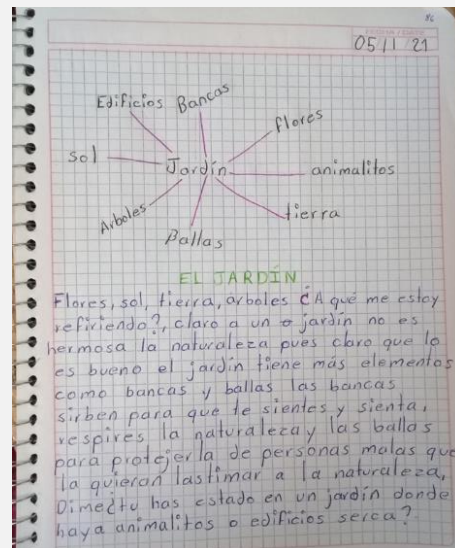 05/1/21
Edificios Bancas
flores
sol
Jardín
animalitos
Arboles
tierra
Ballas
EL JARDÍN
Flores, sol, tierra, arboles ¿A qué me estoy
refiriendo?, claro a un jardín no es
hermosa la naturaleza pues claro que lo
es bueno el jardín tiene más elementos
como bancas y ballas las bancas
sirben para que te sientes y sienta,
respires la naturaleza y las ballas
para protejerla de personas malas que
la quieran lastimar a la naturaleza,
Dimectu has estado en un jardín donde
haya animalitos o edificios serca?